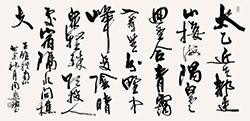 太乙近天都連
山接海隅白雲
迴望合青靄
入看無分野中
峰變陰晴
衆壑殊欲投人
處宿隔水問樵
夫